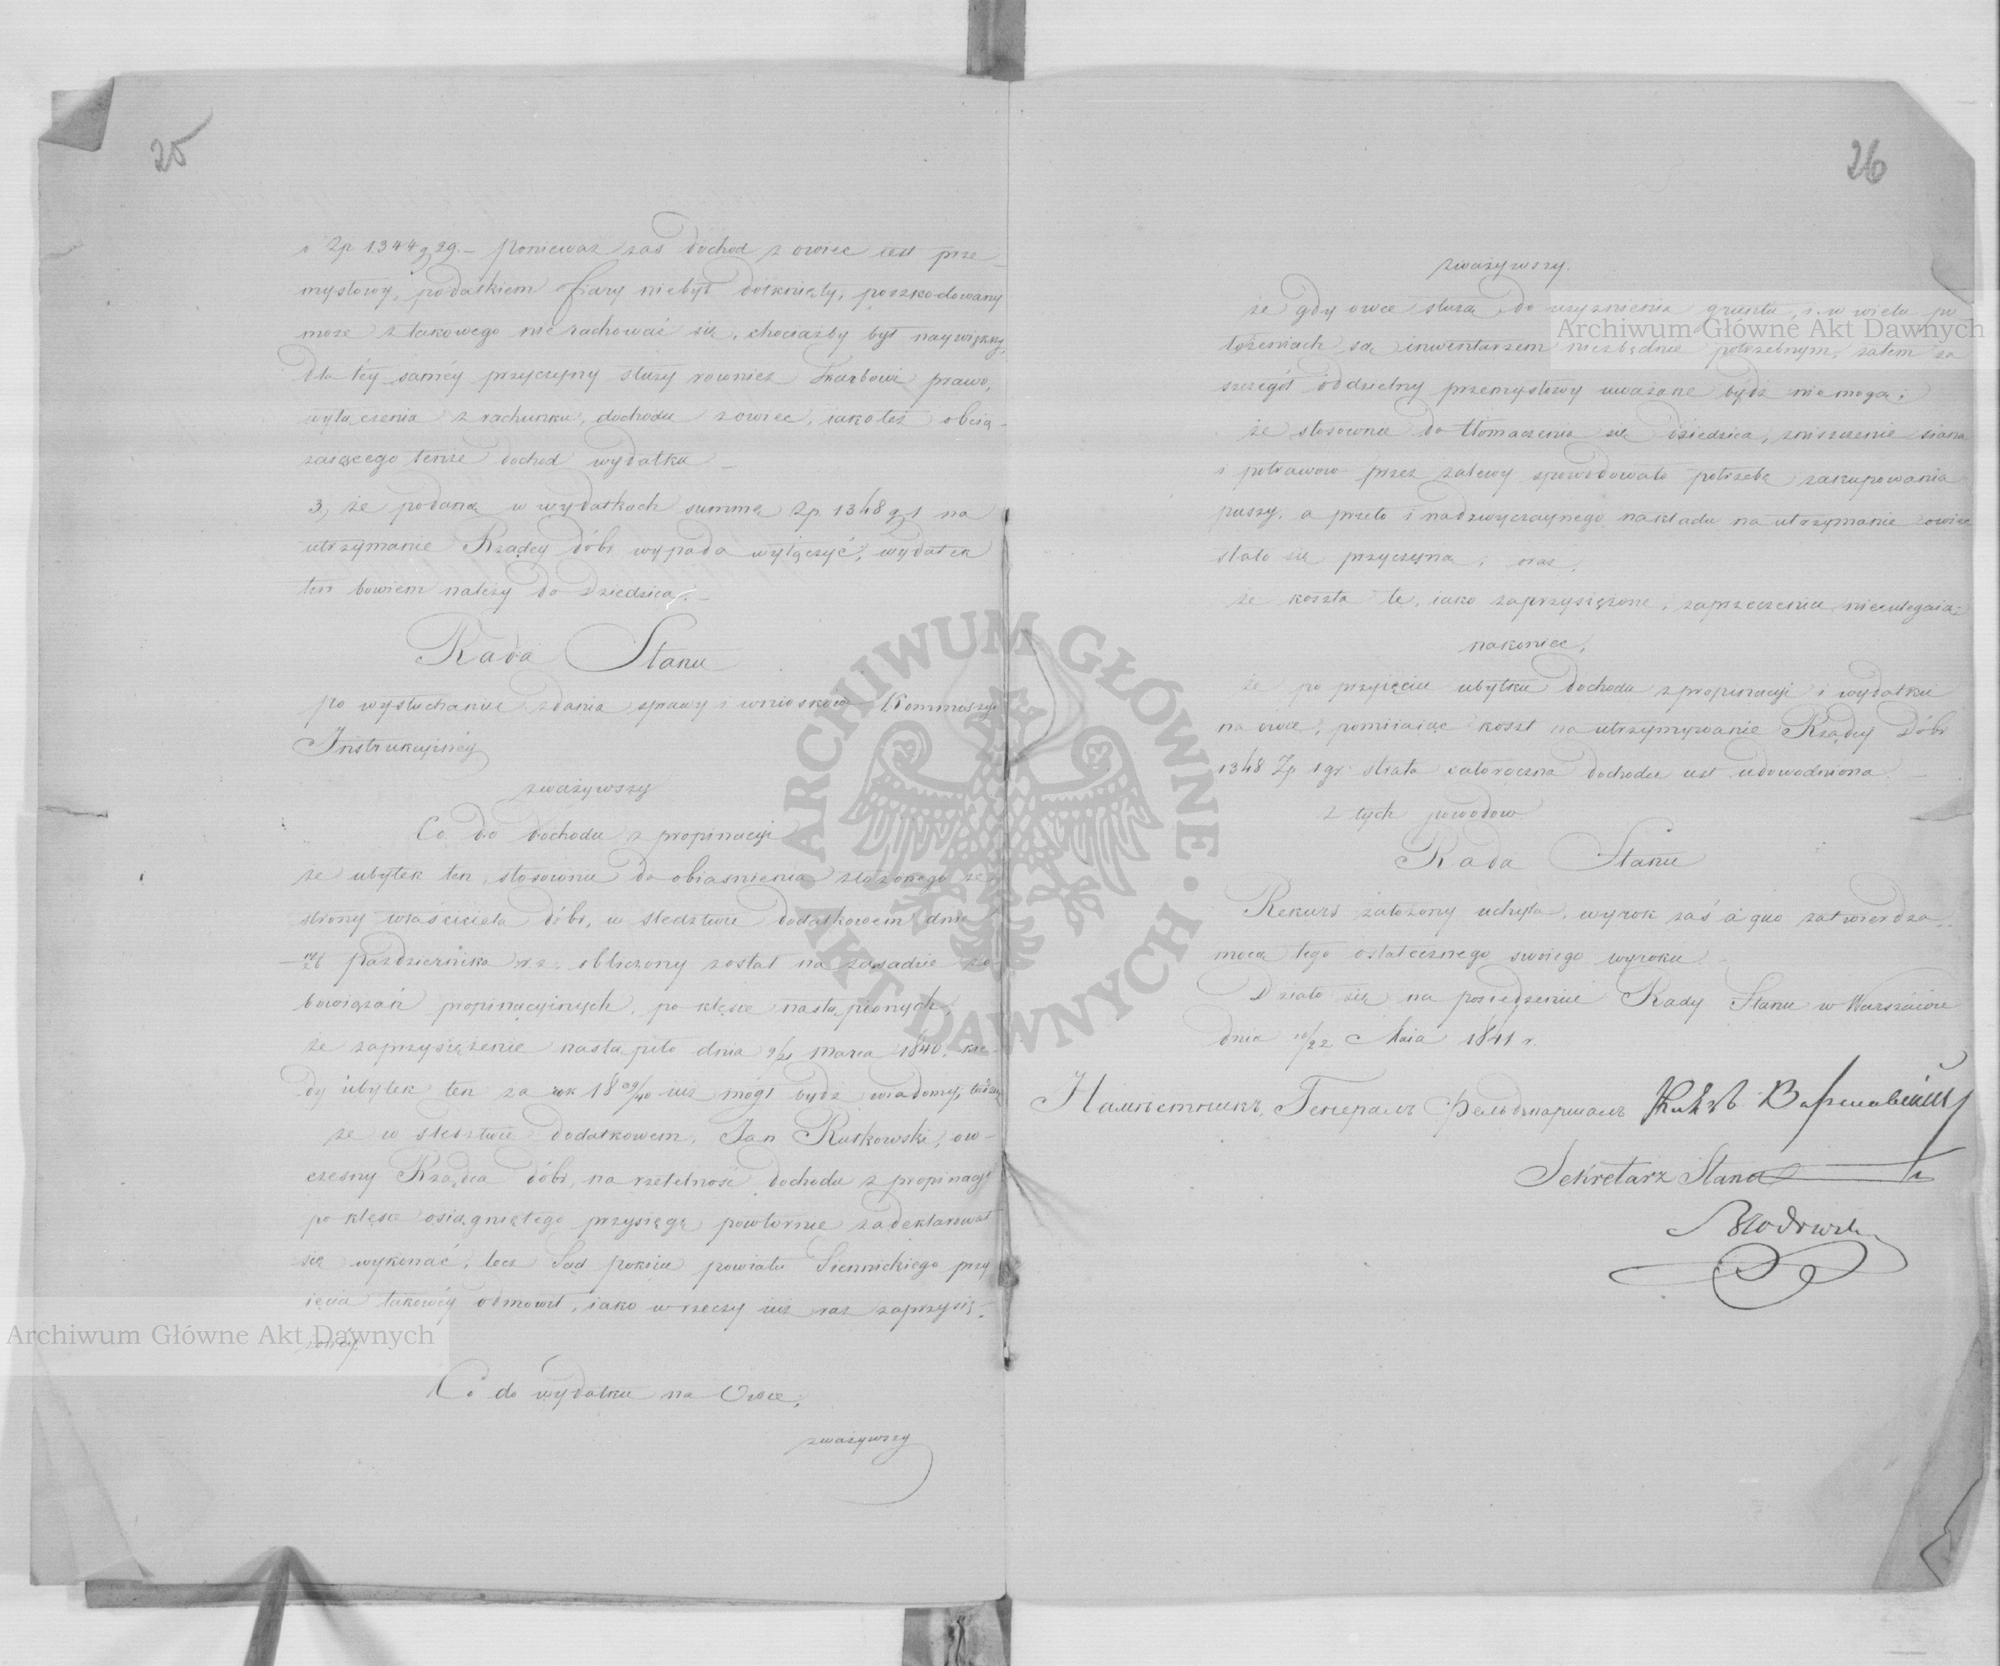 25
o Zp 1344 g 29. – ponieważ zaś dochod z owiec iest prze–
mysłowy, podatkiem fiary niebył dotknięty, poszkodowany
może z takowego nie rachować się, chociażby był naywiększy,
dla téy saméy przyczyny służy rownież Skarbowi prawo,
wyłączenia z rachunku, dochodu z owiec, iako też obcią–
żaiącego tenże dochod wydatku –
3, że podaną w wydatkach summę Zp. 1348 g 1 na
utrzymanie Rządcy dóbr wypada wyłączyć, wydatek
ten bowiem należy do Dziedzica; –
Rada Stanu
po wysłuchaniu zdania sprawy i wniosków Kommissyi
Instrukcyinéy
zważywszy
Co do dochodu z propinacyi
że ubytek ten, stosownie do obiasnienia złożonego ze
strony właściciela dóbr, w śledztwie dodatkowem dnia
14/26 Pazdziernika r. z. obliczony został na zasadzie zo–
bowiązań propinacyinych, po klęsce nastąpionych,
że zaprzysiężenie nastąpiło dnia 9/21 Marca 1840. kie–
dy ubytek ten za rok 18 39/40 iuż mógł bydź wiadomy, tudzież
że w śledztwie dodatkowem, Jan Rutkowski, ow–
czesny Rządca dóbr, na rzetelność dochodu z propinacyi
po klęsce osiągniętego przysięgę powtornie zadeklarował
się wykonać, lecz Sąd pokoiu powiatu Siennickiego przy
ięcia takowéy odmowił, iako w rzeczy iuż raz zaprzysię–
żonéy.
Co do wydatku na Owce,
zważywszy
26
zważywszy.
że gdy owce służą do użyznienia gruntu, i w wielu po
łożeniach są inwentarzem niezbędnie potrzebnym, zatem za
szczegół oddzielny przemysłowy uważane bydź niemogą;
że stosownie do tłomaczenia się dziedzica, zniszczenie siana
i potrawow przez zalewy spowodowało potrzebę zakupowania
paszy, a przeto i nadzwyczaynego nakładu na utrzymanie owiec
stało się przyczyną; oraz,
że koszta te, iako zaprzysiężone, zaprzeczeniu nieulegaią;
nakoniec,
że po przyięciu ubytku dochodu z propinacyi i wydatku
na owce, pomiiaiąc koszt na utrzymywanie Rządcy Dóbr
1348 Zp 1 gr. strata całoroczna dochodu iest udowodniona. –
z tych powodow
Rada Stanu
Rekurs założony uchyla, wyrok zaś à quo zatwierdza
mocą tego ostatecznego swoiego wyroku. –
Działo się na posiedzeniu Rady Stanu w Warszawie
dnia 10/22 Maia 1841 r.
Намѣстникъ, Генералъ Фельдмаршалъ Князь Варшавскій
Sekretarz Stanu
Archiwum Główne Akt Dawnych
Archiwum Główne Akt Dawnych
ARCHIWUM GŁÓWNE AKT DAWNYCH